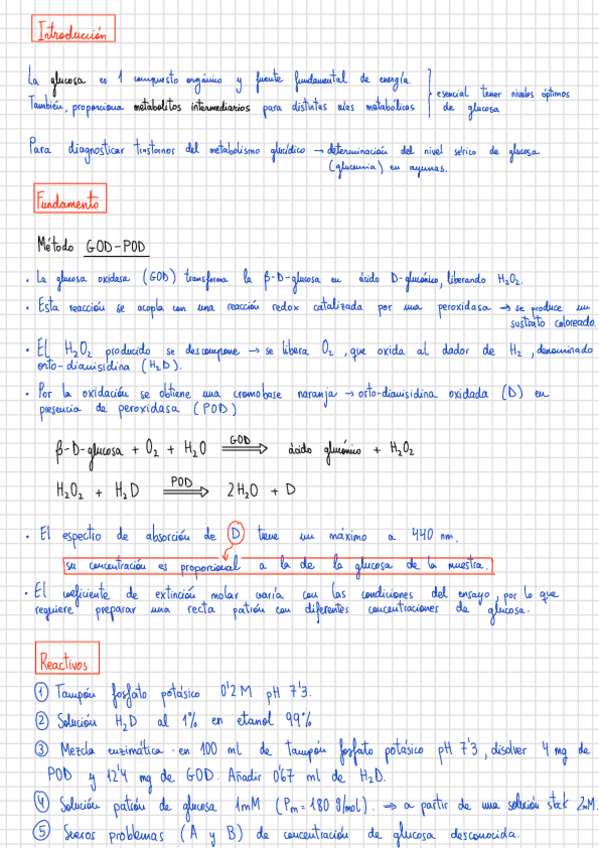 Introducción
La glucosa es 1 compuesto orgánico y fuente fundamental de energía.
También, proporciona metabolitos intermediarios para distintas vías metabólicas
esencial tener niveles óptimos
de glucosa
Para diagnosticar trastornos del metabolismo glucídico → determinación del nivel sérico de glucosa
(glucemia) en ayunas.
Fundamento
Método GOD-POD
· La glucosa oxidasa (GOD) transforma la β-D-glucosa en ácido D-glucónico, liberando H₂O₂.
· Esta reacción se acopla con una reacción redox catalizada por una peroxidasa → se produce un
sustrato coloreado.
· El H₂O₂ producido se descompone → se libera O₂, que oxida al dador de H₂, denominado
orto-dianisidina (H₂D).
· Por la oxidación se obtiene una cromobase naranja → orto-dianisidina oxidada (D) en
presencia de peroxidasa (POD)
β-D-glucosa + O₂ + H₂O GOD ⟹ ácido glucónico + H₂O₂
H₂O₂ + H₂D POD ⟹ 2H₂O + D
· El espectro de absorción de D tiene un máximo a 440 nm.
su concentración es proporcional a la de la glucosa de la muestra.
· El coeficiente de extinción molar varía con las condiciones del ensayo, por lo que
requiere preparar una recta patrón con diferentes concentraciones de glucosa.
Reactivos
① Tampón fosfato potásico 0'2 M pH 7'3.
② Solución H₂D al 1% en etanol 99%
③ Mezcla enzimática: en 100 ml de tampón fosfato potásico pH 7'3, disolver 4 mg de
POD y 12'4 mg de GOD. Añadir 0'67 ml de H₂D.
④ Solución patrón de glucosa 1mM (Pm = 180 g/mol). → a partir de una solución stock 2mM.
⑤ Sueros problemas (A y B) de concentración de glucosa desconocida.